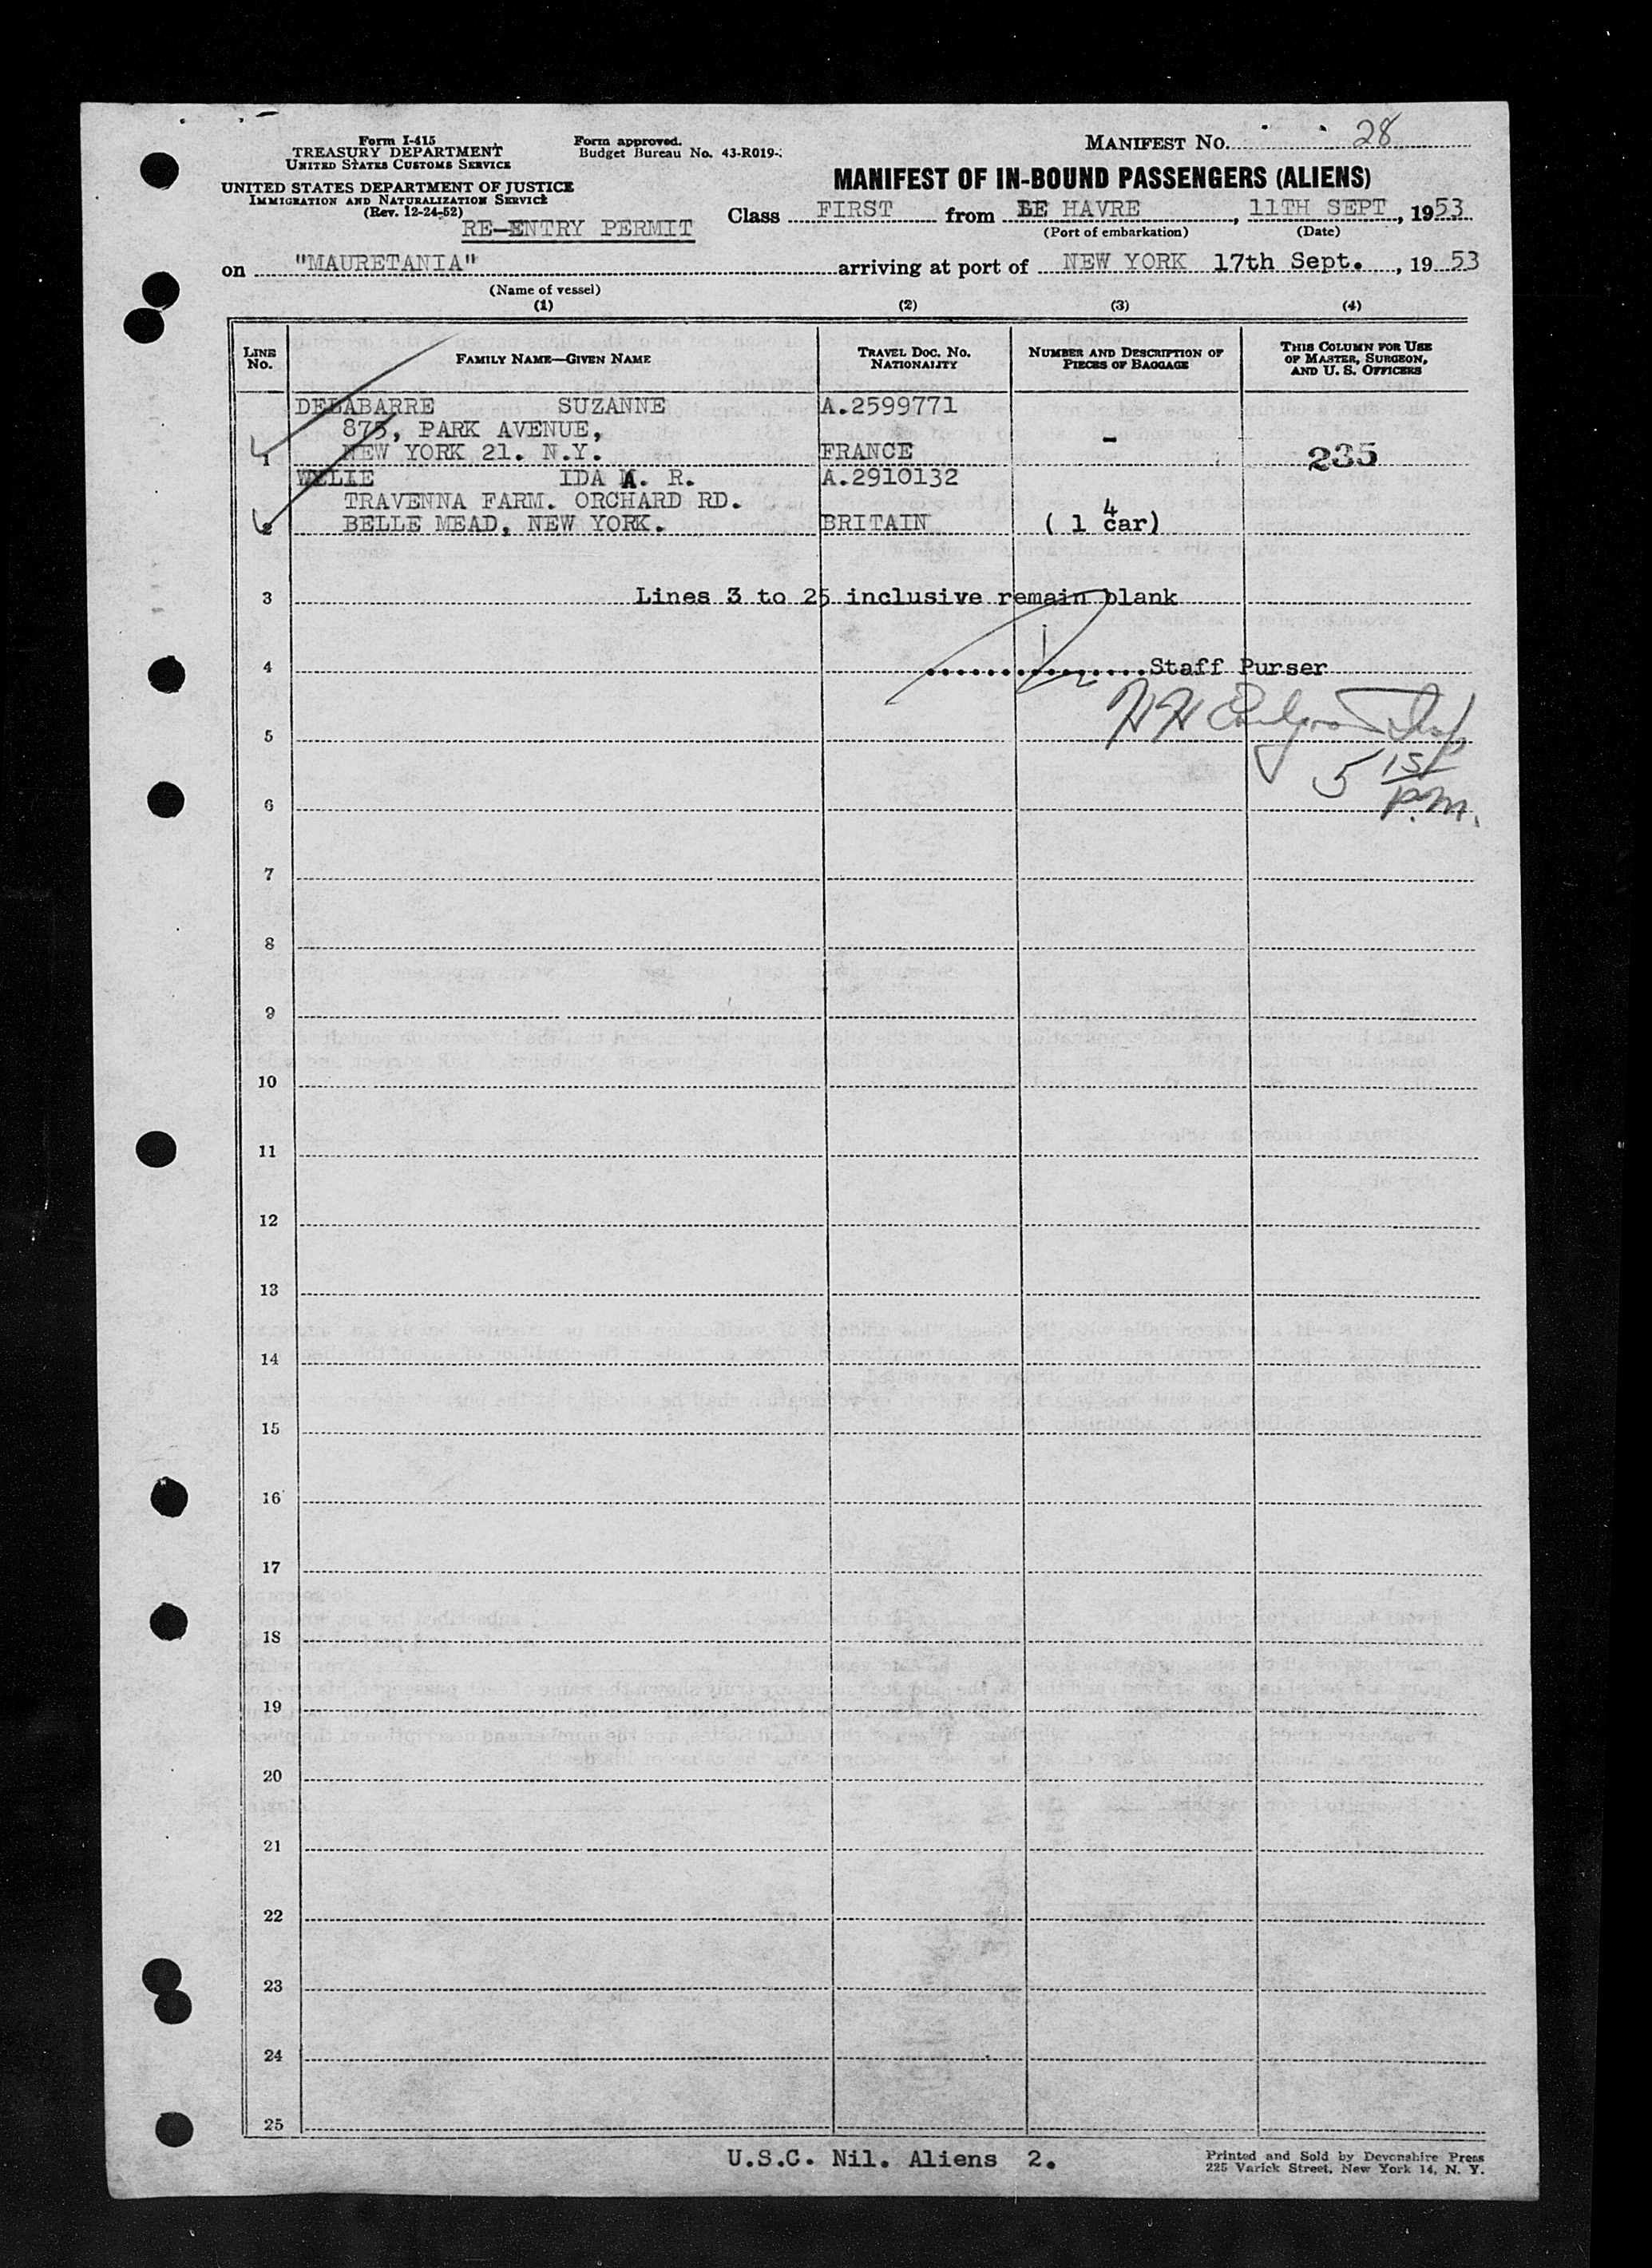 Form I-415
TREASURY DEPARTMENT
UNITED STATES CUSTOMS SERVICE
UNITED STATES DEPARTMENT OF JUSTICE
IMMIGRATION AND NATURALIZATION SERVICE
(Rev. 12-24-52)
Form approved.
Budget Bureau No. 43-R019-
RE-ENTRY PERMIT
MANIFEST NO. 28
MANIFEST OF IN-BOUND PASSENGERS (ALIENS)
Class FIRST from LE HAVRE, 11TH SEPT, 1953
(Port of embarkation) (Date)
on "MAURETANIA" arriving at port of NEW YORK 17th Sept., 1953
(Name of vessel)
(1) (2) (3) (4)
LINE NO. FAMILY NAME—GIVEN NAME TRAVEL DOC. NO. NATIONALITY NUMBER AND DESCRIPTION OF PIECES OF BAGGAGE THIS COLUMN FOR USE OF MASTER, SURGEON, AND U. S. OFFICERS
DELABARRE SUZANNE A.2599771
875, PARK AVENUE, -
1 NEW YORK 21. N.Y. FRANCE 235
WYLIE IDA A. R. A.2910132
TRAVENNA FARM. ORCHARD RD. 4
2 BELLE MEAD, NEW YORK. BRITAIN ( 1 car)
3 Lines 3 to 25 inclusive remain blank
4 ..................Staff Purser
5
5 15/P.M.
6
7
8
9
10
11
12
13
14
15
16
17
18
19
20
21
22
23
24
25
U.S.C. Nil. Aliens 2.
Printed and Sold by Devonshire Press
225 Varick Street, New York 14, N. Y.